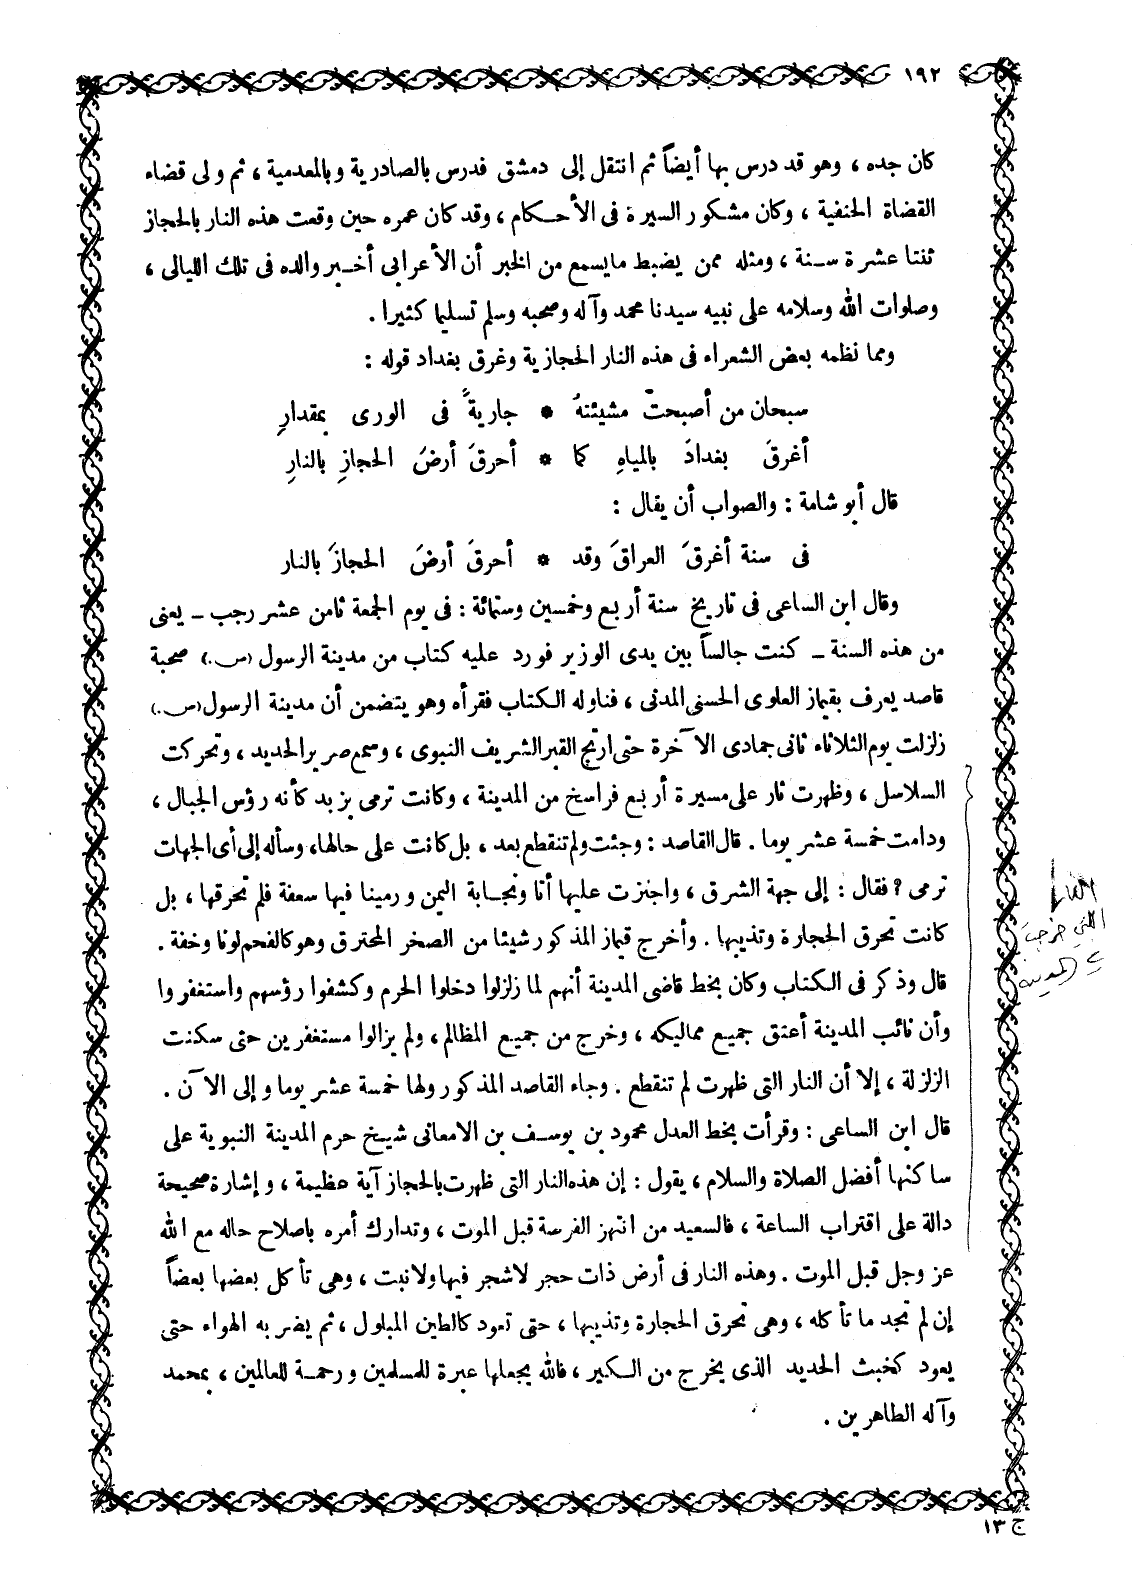 ١٩٢
كان جده ، وهو قد درس بها أيضاً ثم انتقل إلى دمشق فدرس بالصادرية وبالمعدمية ، ثم ولى قضاء
القضاة الحنفية ، وكان مشكور السيرة فى الأحكام ، وقد كان عمره حين وقعت هذه النار بالحجاز
ثنتا عشرة سنة ، ومثله ممن يضبط مايسمع من الخبر أن الأعرابي أخبر والده فى تلك الليالى ،
وصلوات الله وسلامه على نبيه سيدنا محمد وآله وصحبه وسلم تسليما كثيرا .
ومما نظمه بعض الشعراء فى هذه النار الحجازية وغرق بغداد قوله :
سبحان من أصبحتْ مشيئتهُ * جاريةً فى الورى بمقدارِ
أغرقَ بغدادَ بالمياهِ كما * أحرقَ أرضَ الحجازِ بالنارِ
قال أبو شامة : والصواب أن يقال :
فى سنة أغرقَ العراقَ وقد * أحرقَ أرضَ الحجازَ بالنار
وقال ابن الساعى فى تاريخ سنة أربع وخمسين وستمائة : فى يوم الجمعة ثامن عشر رجب ــ يعنى
من هذه السنة ــ كنت جالساً بين يدى الوزير فورد عليه كتاب من مدينة الرسول (س.) صحبة
قاصد يعرف بقيماز العلوى الحسنى المدنى ، فناوله الكتاب فقرأه وهو يتضمن أن مدينة الرسول (س.)
زلزلت يوم الثلاثاء ثانى جمادى الآخرة حتى ارتج القبر الشريف النبوى ، وسمع صرير الحديد ، وتحركت
السلاسل ، وظهرت نار على مسيرة أربع فراسخ من المدينة ، وكانت ترمى بزبد كأنه رؤس الجبال ،
ودامت خمسة عشر يوما . قال القاصد : وجئت ولم تنقطع بعد ، بل كانت على حالها، وسأله إلى أى الجهات
ترمى ؟ فقال : إلى جهة الشرق ، واجتزت عليها أنا ونجابة اليمن ورمينا فيها سعفة فلم تحرقها ، بل
كانت تحرق الحجارة وتذيبها . وأخرج قيماز المذكور شيئا من الصخر المحترق وهو كالفحم لونا وخفة .
قال وذكر فى الكتاب وكان بخط قاضى المدينة أنهم لما زلزلوا دخلوا الحرم وكشفوا رؤسهم واستغفروا
وأن نائب المدينة أعتق جميع مماليكه ، وخرج من جميع المظالم ، ولم يزالوا مستغفرين حتى سكنت
الزلزلة ، إلا أن النار التى ظهرت لم تنقطع . وجاء القاصد المذكور ولها خمسة عشر يوما وإلى الآن .
قال ابن الساعى : وقرأت بخط العدل محمود بن يوسف بن الامعانى شيخ حرم المدينة النبوية على
ساكنها أفضل الصلاة والسلام ، يقول : إن هذه النار التى ظهرت بالحجاز آية عظيمة ، وإشارة صحيحة
دالة على اقتراب الساعة ، فالسعيد من انتهز الفرصة قبل الموت ، وتدارك أمره باصلاح حاله مع الله
عز وجل قبل الموت . وهذه النار فى أرض ذات حجر لاشجر فيها ولا نبت ، وهى تأكل بعضها بعضاً
إن لم تجد ما تأكله ، وهى تحرق الحجارة وتذيبها ، حتى تعود كالطين المبلول ، ثم يضربه الهواء حتى
يعود كخبث الحديد الذى يخرج من الكير ، فالله يجعلها عبرة للمسلمين ورحمة للعالمين ، بمحمد
وآله الطاهرين .
النار
التي خرجت
في المدينة
ج ١٣